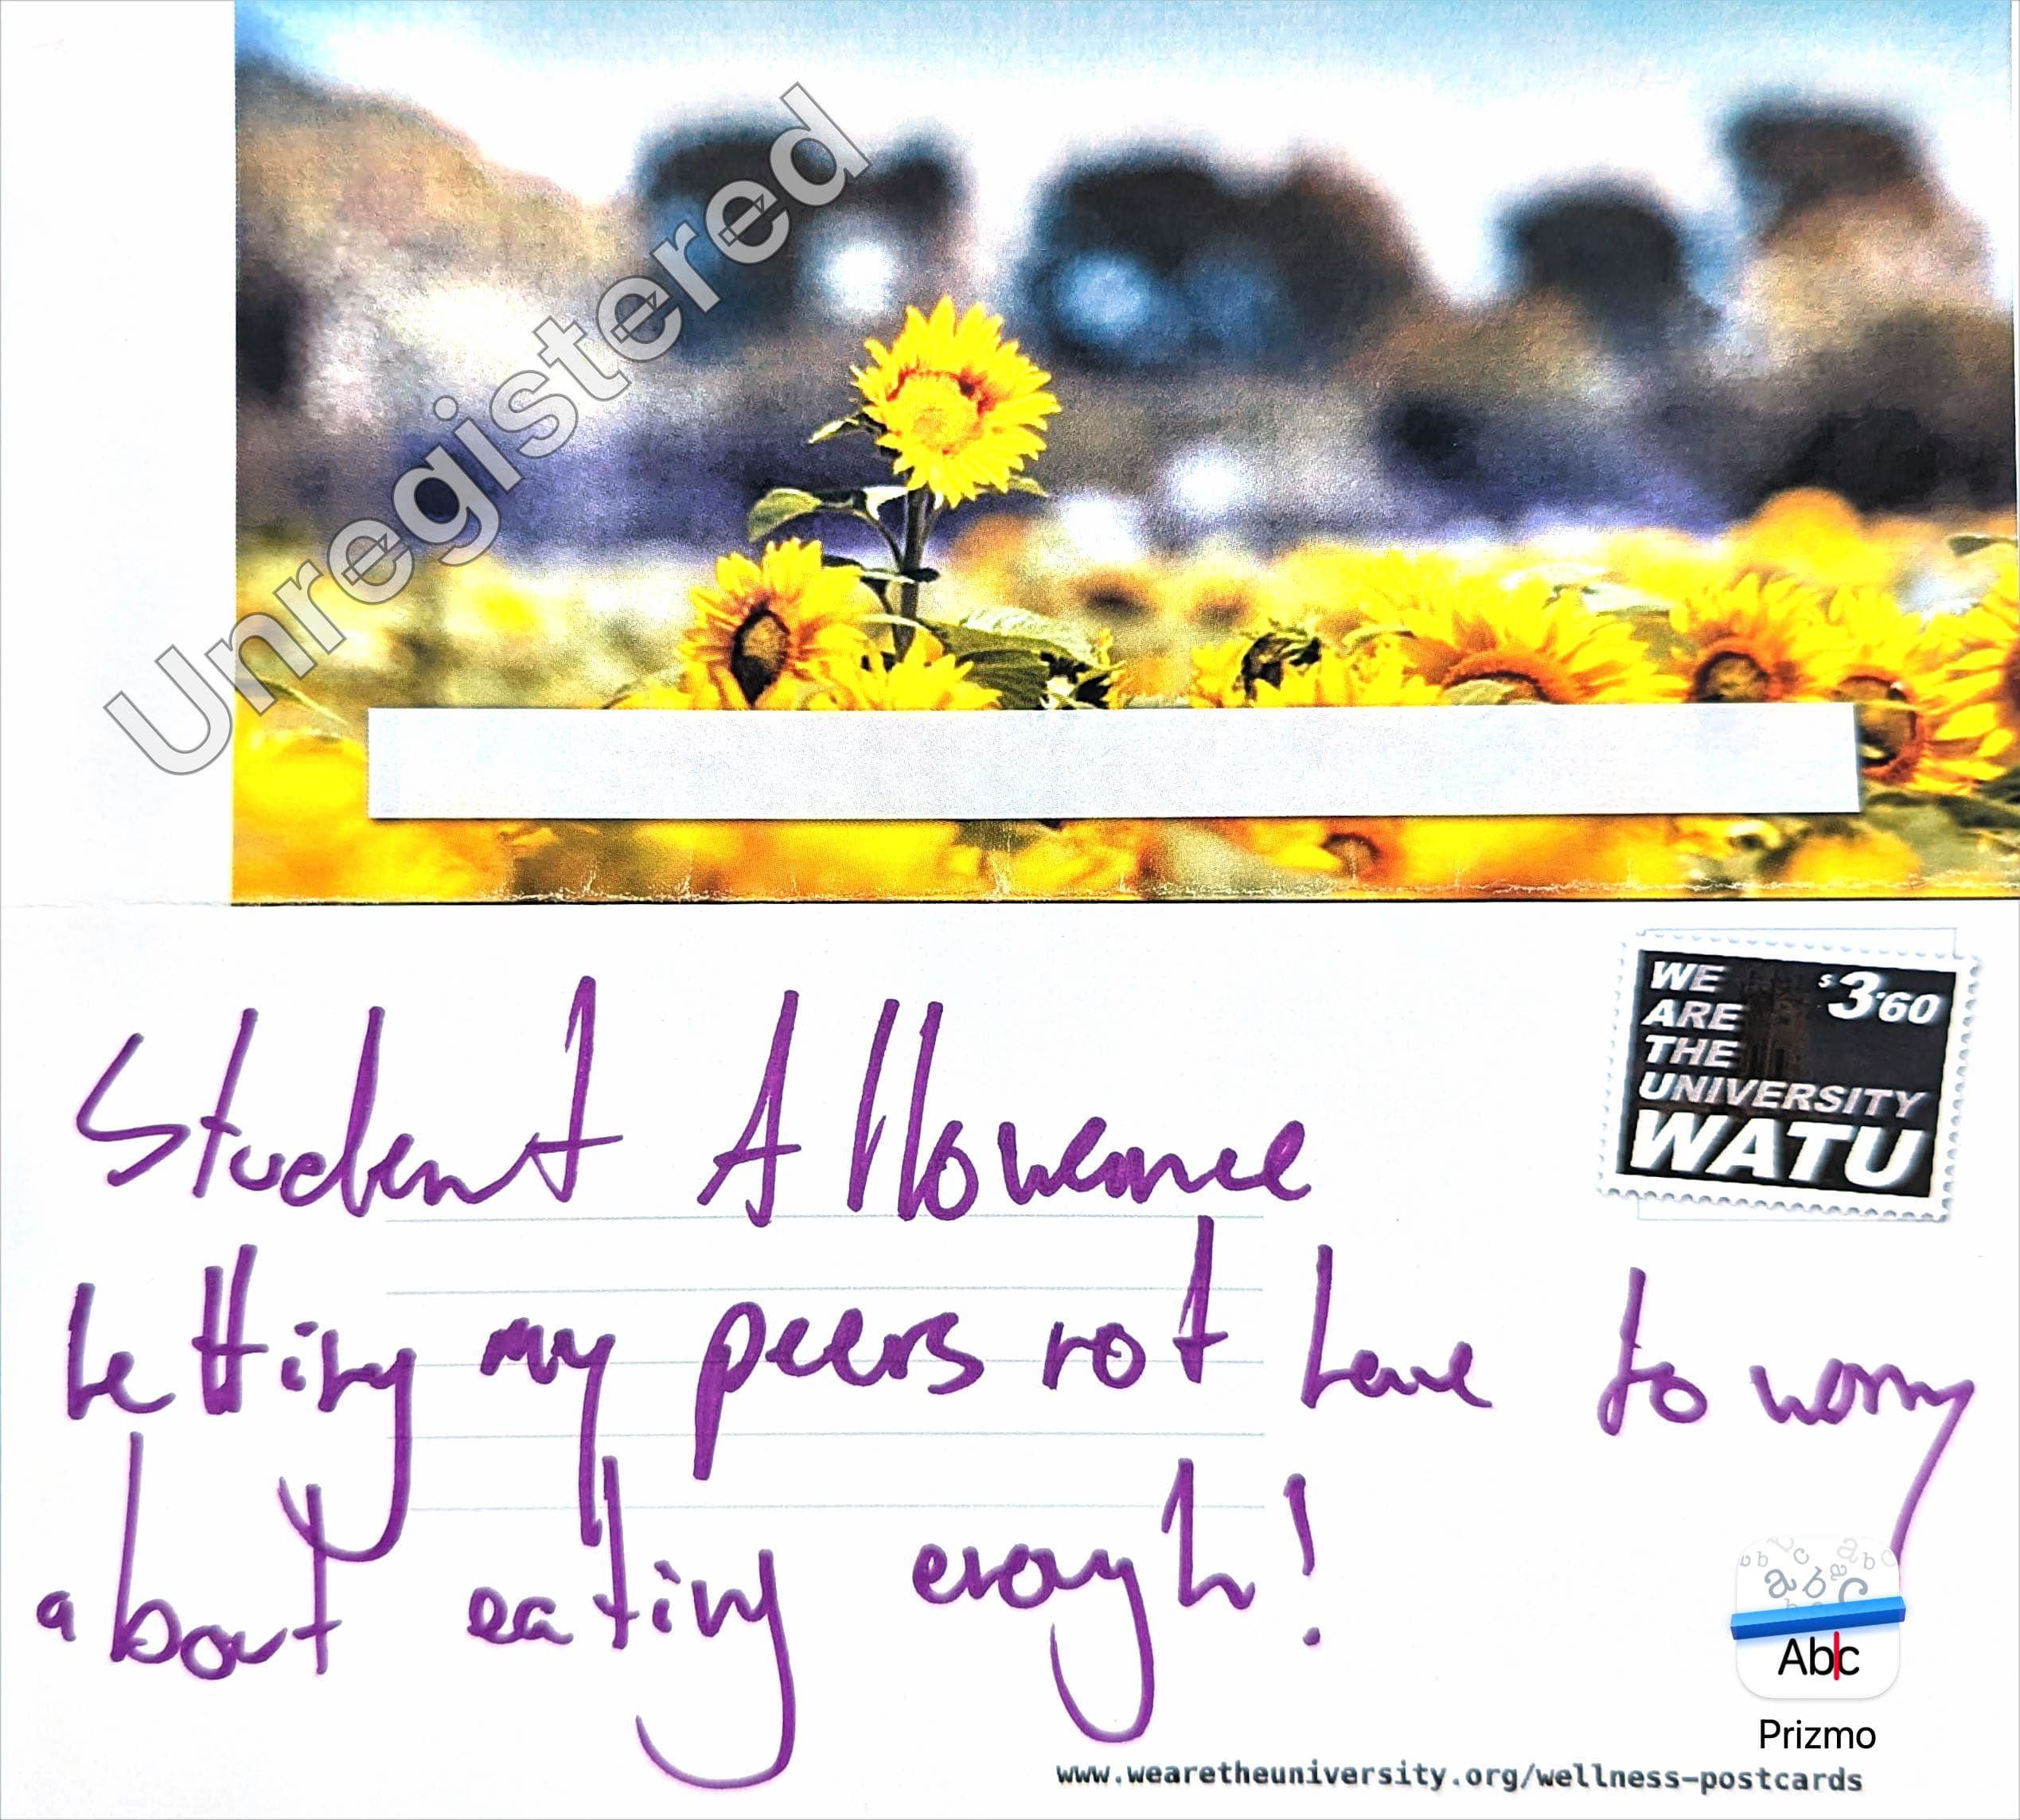 Unregistered
WE
ARE
THE
UNIVERSITY
WATU
$3.60
Student Allowance
Letting my peers not have to worry
about eating enough!
Abc
Prizmo
www.wearetheuniversity.org/wellness-postcards